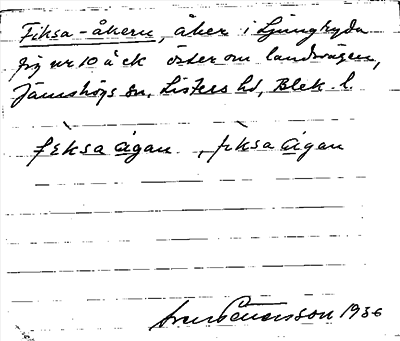 Fiksa-åkern, åker i Ljungryda
fig nr 10 å ek öster om landsvägen,
Jämshögs sn, Listers hd, Blek. l.
fèksa ågan. , fìksa ågan
Svensson 1936